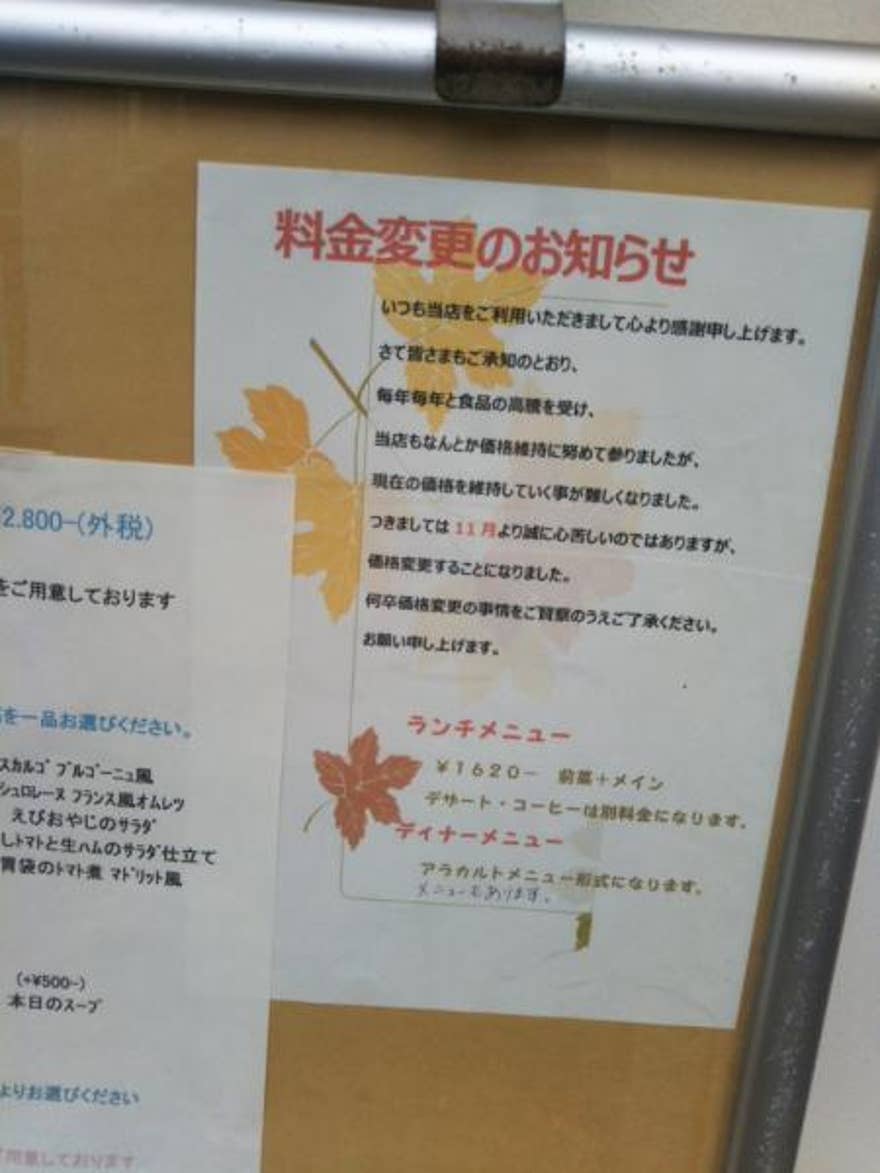 料金変更のお知らせ
いつも当店をご利用いただきまして心より感謝申し上げます。
さて皆さまもご承知のとおり、
毎年毎年と食品の高騰を受け、
当店もなんとか価格維持に努めて参りましたが、
現在の価格を維持していく事が難しくなりました。
つきましては11月より誠に心苦しいのではありますが、
価格変更することになりました。
何卒価格変更の事情をご賢察のうえご了承ください。
お願い申し上げます。
ランチメニュー
¥1620- 前菜+メイン
デザート・コーヒーは別料金になります。
ディナーメニュー
アラカルトメニュー形式になります。
メニューもあります。
2.800-(外税)
をご用意しております
を一品お選びください。
スカルゴ ブルゴーニュ風
シュロレーヌ フランス風オムレツ
えびおやじのサラダ
しトマトと生ハムのサラダ仕立て
胃袋のトマト煮 マドリット風
(+¥500-)
本日のスープ
よりお選びください
用意しております